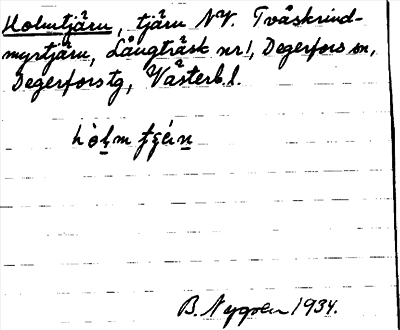 Holmtjärn, tjärn NV. Tväskrind-
myrtjärn, Långträsk nr 1, Degerfors sn,
Degerfors tg, Västerb. l.
B. Nygren 1934.